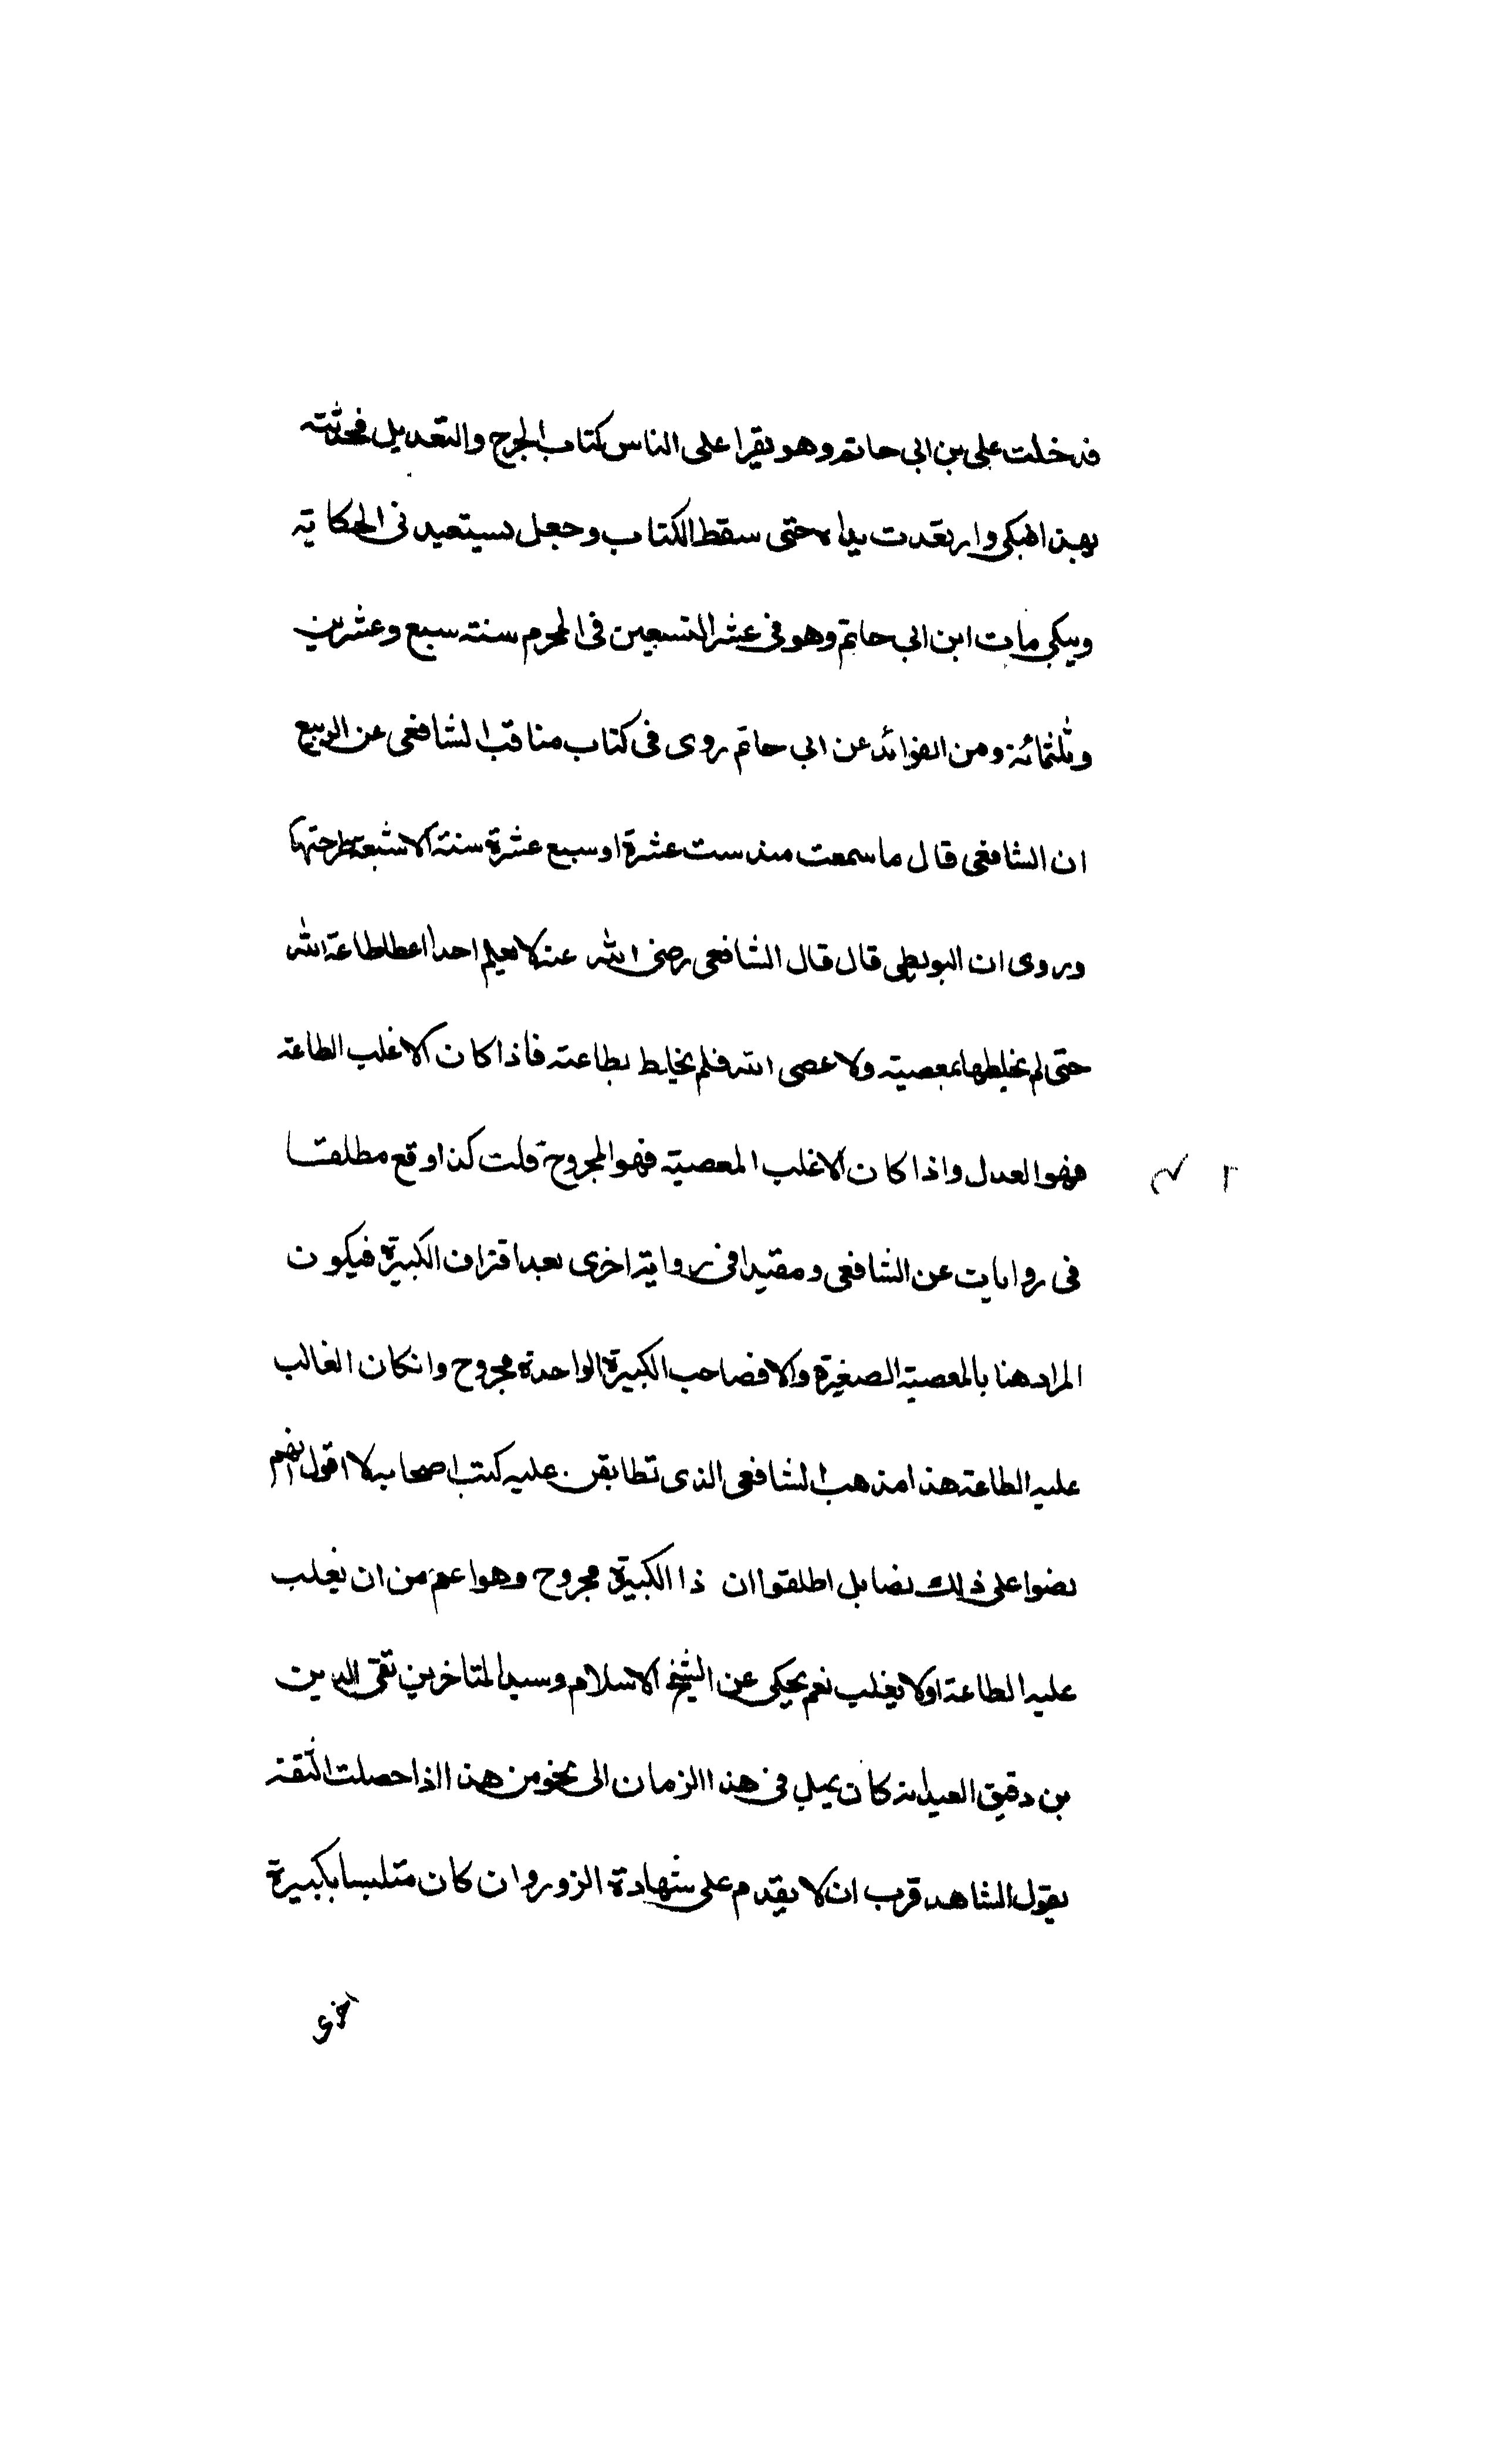 فدخلت على بن ابى حاتم وهو يقرا على الناس كتاب الجرح والتعديل فحدثته
بهذا فبكى وارتعدت يداه حتى سقط الكتاب وجعل يستعيد نى الحكاية
ويبكى مات ابن ابى حاتم وهو فى عشر التسعين فى المحرم سنة سبع وعشرين
وثلثمائة ومن الفوائد عن ابى حاتم روى فى كتاب مناقب الشافعى عن الربيع
ان الشافعى قال ما سمعت منذ ست عشرة او سبع عشرة سنة الا شبعة طرحتها
وروى ان البويطى قال قال الشافعى رضى الله عنه لا نعلم احدا اعطا طاعة الله
حتى لم يخلطها بمعصية ولا عصى الله فلم يخلط بطاعته فاذا كان الاغلب الطاعة
فهو العدل واذا كان الاغلب المعصية فهو المجروح قلت كذا وقع مطلقا
فى روايات عن الشافعى ومقيدا فى رواية اخرى بعد اقتراف الكبيرة فيكون
المراد هنا بالمعصية الصغيرة والا فصاحب الكبيرة الواحدة مجروح وانكان الغالب
عليه الطاعة هذا مذهب الشافعى الذى تطابقن عليه كتب اصحابه لا اقول انهم
نصوا على ذلك نصا بل اطلقوا ان ذا الكبيرة مجروح وهو اعم من ان يغلب
عليه الطاعة اولا يغلب نعم يحكى عن الشيخ الاسلام وسيد المتاخرين تقى الدين
بن دقيق العيد انه كان يميل فى هذا الزمان الى نحو من هذا اذا حصلت الثقة
بقول الشاهد قرب ان لا يقدم على شهادة الزور وان كان متلبسا بكبيرة
اخرى